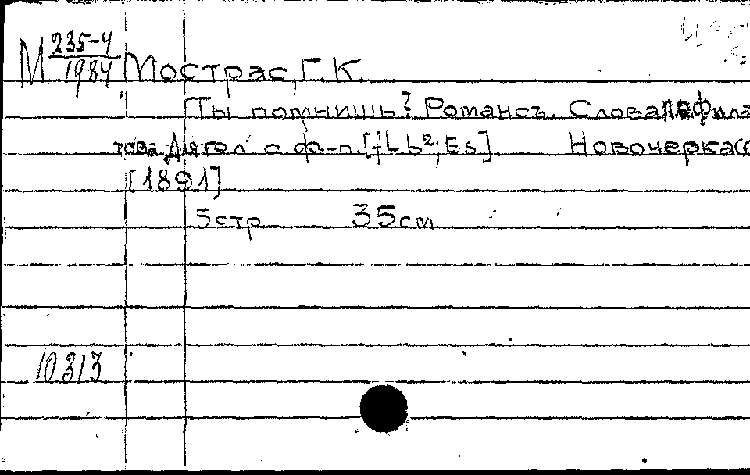 М 235-4
1984 Мострас, Г.К.
Ты помнишь? Романсъ. Слова Перфила
това Для гол с ф-п. [f-b²; Es] Новочеркасс
[1891]
5 стр 35 см
10313